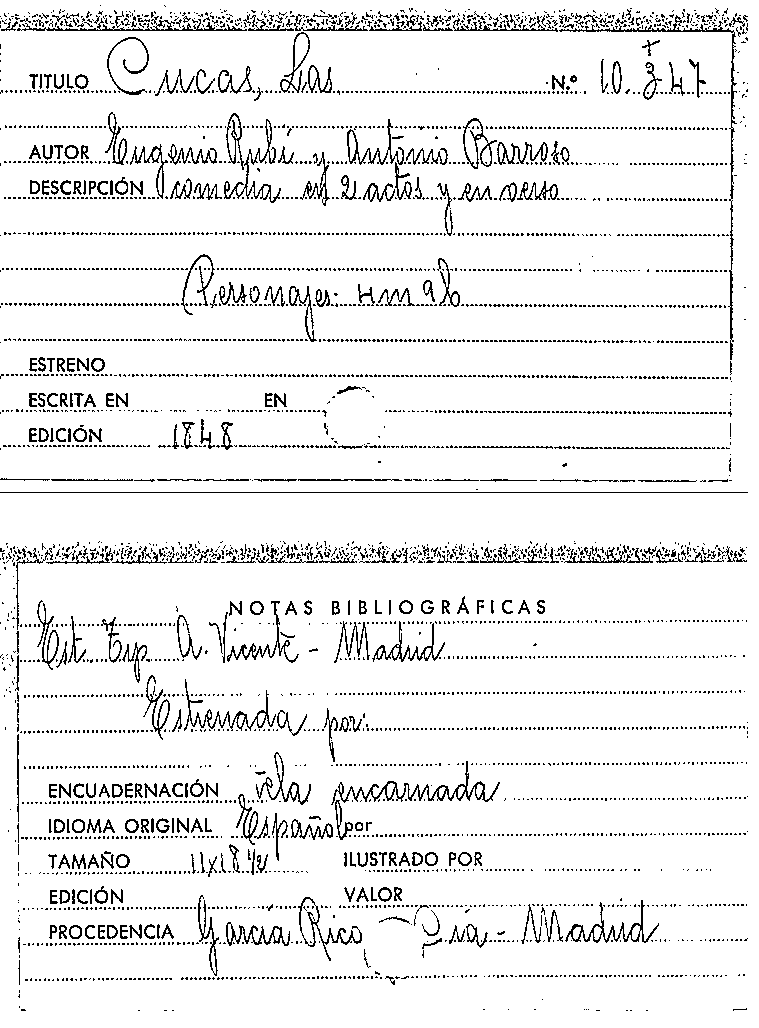 TITULO Cucas, Las N.º 10.347
AUTOR Eugenio Rubí y Antonio Barroso
DESCRIPCIÓN Comedia en 2 actos y en verso
Personajes: 4m 9h
ESTRENO
ESCRITA EN EN
EDICIÓN 1848
NOTAS BIBLIOGRÁFICAS
Est. Tip. A. Vicente - Madrid
Estrenada por:
ENCUADERNACIÓN tela encarnada
IDIOMA ORIGINAL Español por
TAMAÑO 11x18 1/2 ILUSTRADO POR
EDICIÓN VALOR
PROCEDENCIA García Rico Cía - Madrid